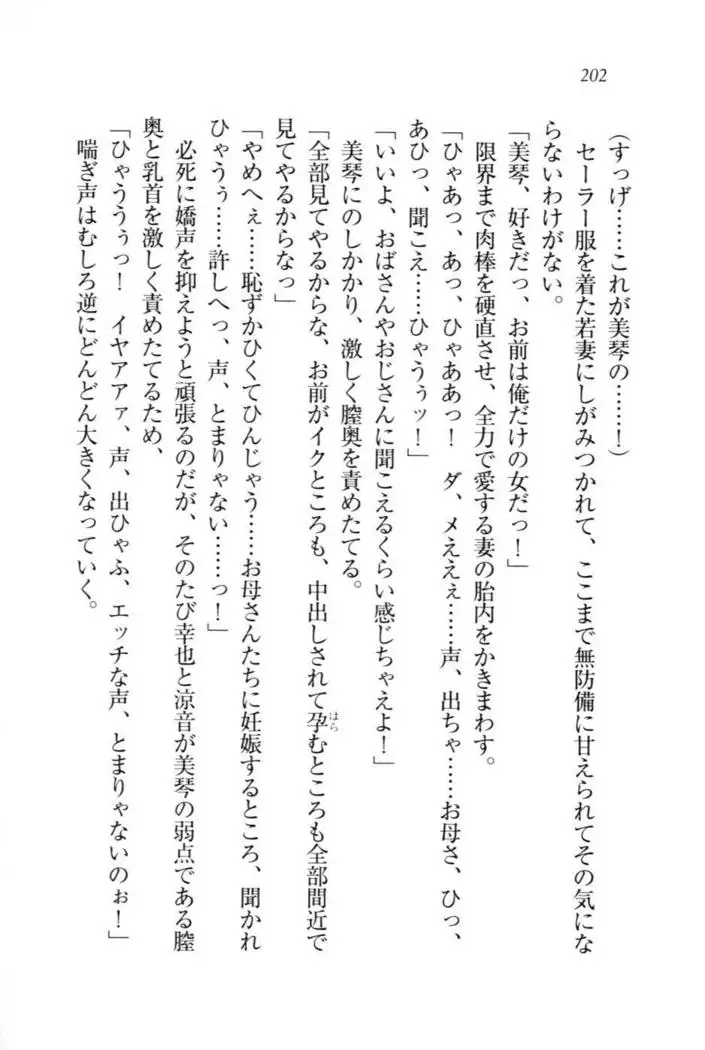 202
(すっげ……これが美琴の……!)
セーラー服を着た若妻にしがみつかれて、ここまで無防備に甘えられてその気にな
らないわけがない。
「美琴、好きだっ、お前は俺だけの女だっ!」
限界まで肉棒を硬直させ、全力で愛する妻の胎内をかきまわす。
「ひゃあっ、あっ、ひゃああっ! ダ、メええぇ……声、出ちゃ……お母さ、ひっ、
あひっ、聞こえ……ひゃうぅッ!」
「いいよ、おばさんやおじさんに聞こえるくらい感じちゃえよ!」
美琴にのしかかり、激しく膣奥を責めたてる。
「全部見てやるからな、お前がイクところも、中出しされて孕むところも全部間近で
はら
見てやるからなっ」
「やめへぇ……恥ずかひくてひんじゃう……お母さんたちに妊娠するところ、聞かれ
ひゃうぅ……許しへっ、声、とまりゃない……っ!」
必死に嬌声を抑えようと頑張るのだが、そのたび幸也と涼音が美琴の弱点である膣
奥と乳首を激しく責めたてるため、
「ひゃううぅっ! イヤアアァ、声、出ひゃふ、エッチな声、とまりゃないのぉ!」
喘ぎ声はむしろ逆にどんどん大きくなっていく。